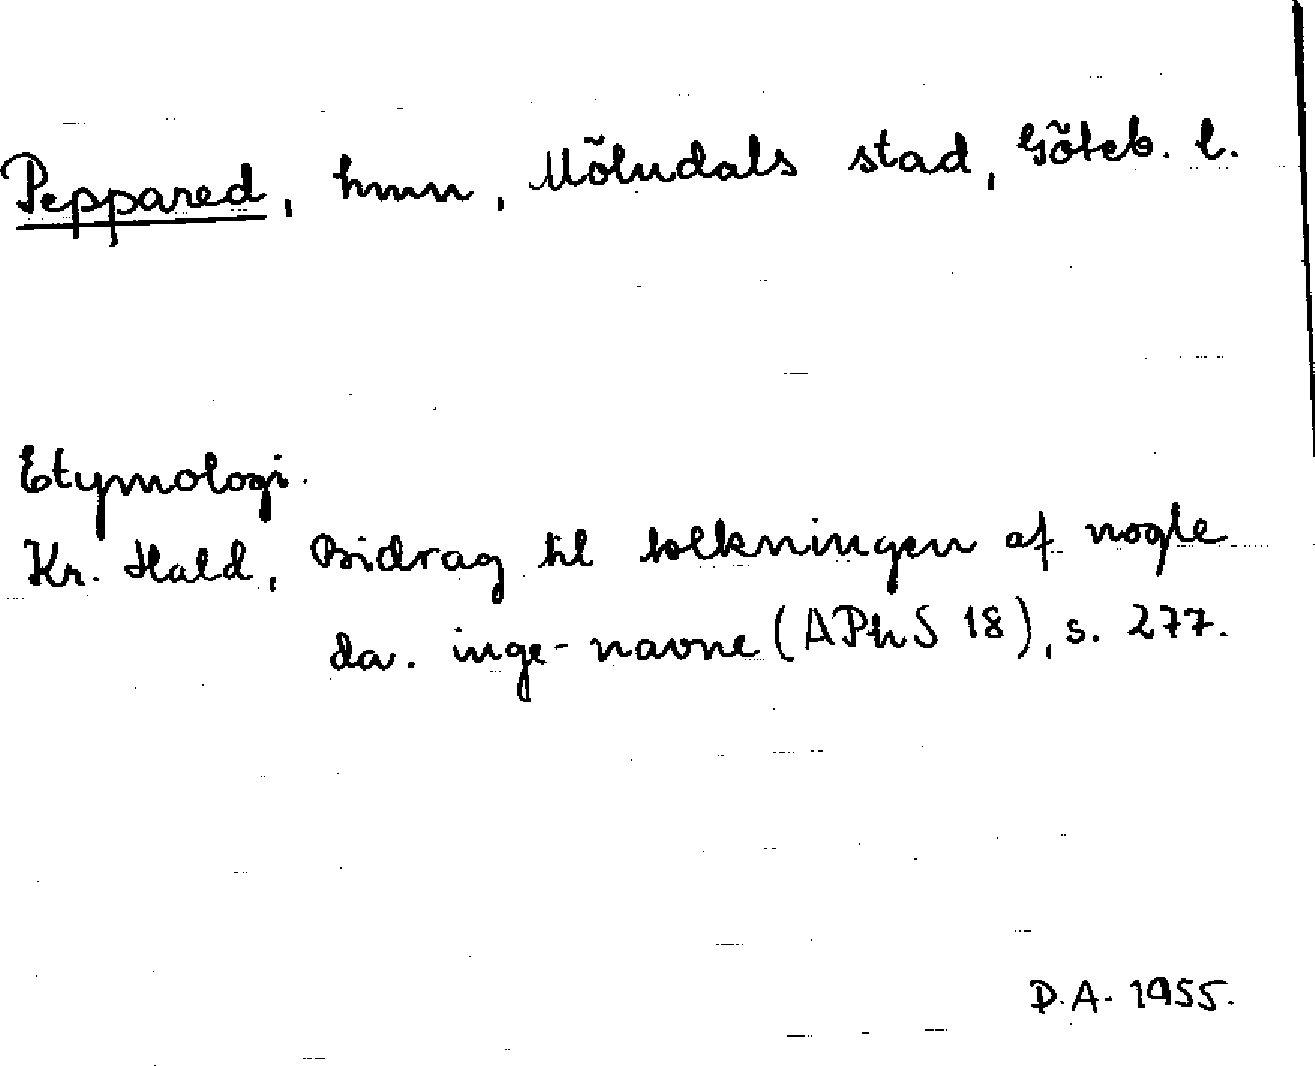 Peppared, hmn, Mölndals stad, Göteb. l.
Etymologi.
Kr. Hald, Bidrag til tolkningen af nogle
da. inge-navne (APhS 18), s. 277.
D.A. 1955.